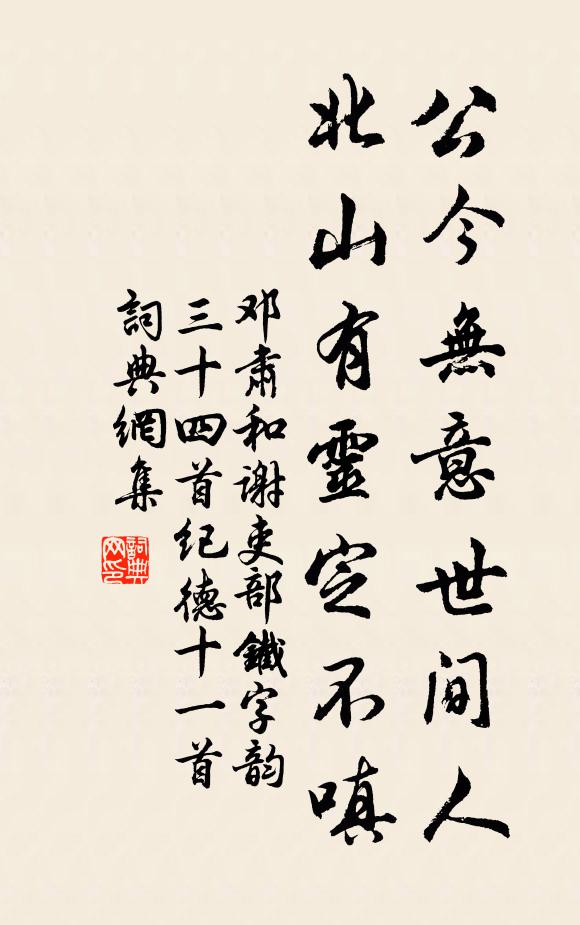 公今無意世间人
北山有靈定不嗔
邓肅和谢吏部鐵字韵
三十四首纪德十一首
詞典網集
詞典网印